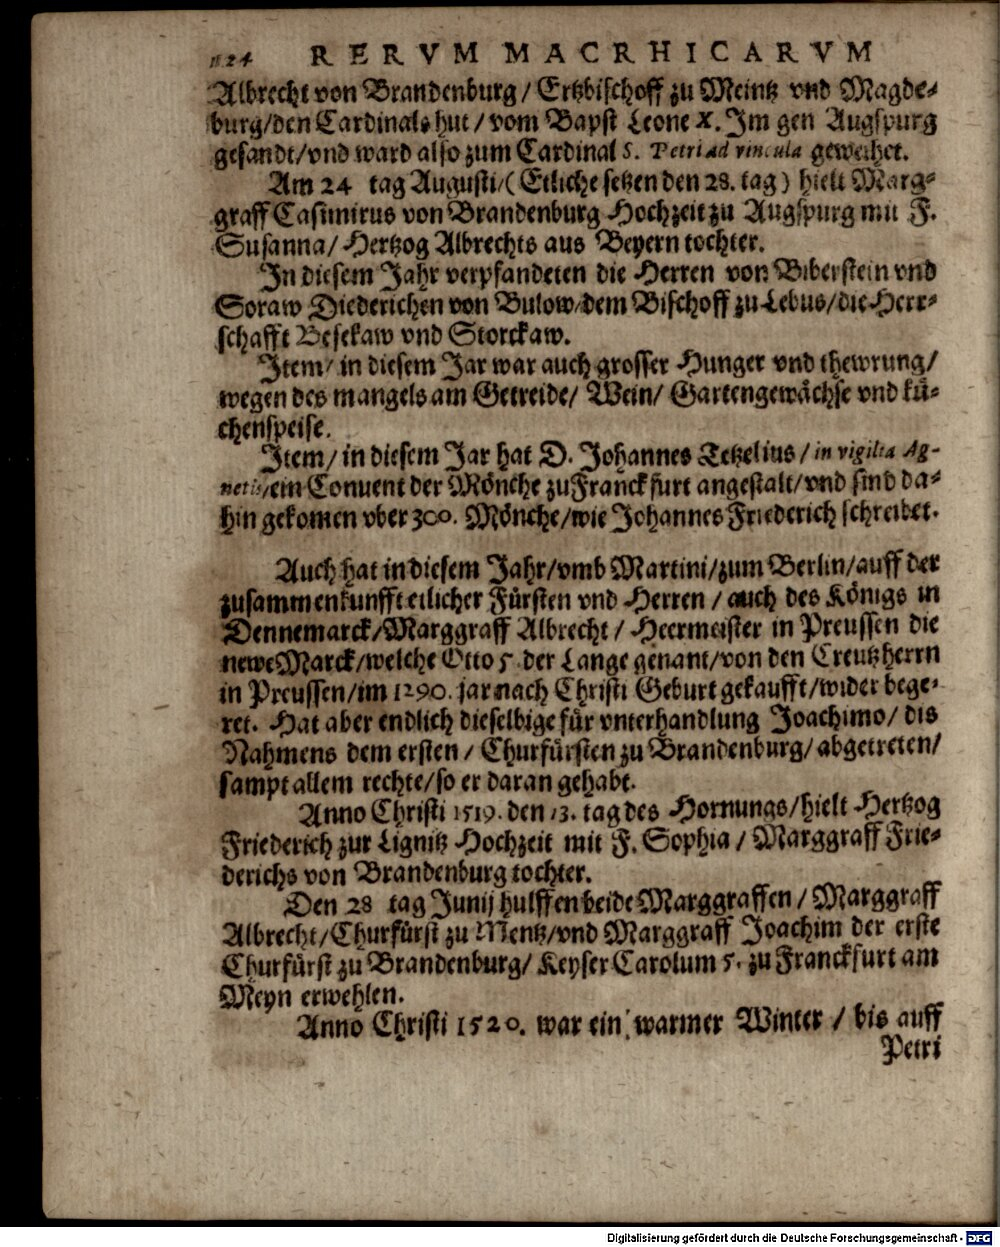 124 RERVM MACRHICARVM
Albrecht von Brandenburg / Ertzbischoff zu Meintz vnd Magde-
burg/den Cardinals hut / vom Bapst Leone X. Im gen Augspurg
gesandt/vnd ward also zum Cardinal S. Petri ad vincula geweihet.
Am 24 tag Augusti/(Etliche setzen den 28. tag) hielt Marg-
graff Casimirus von Brandenburg Hochzeit zu Augspurg mit F.
Susanna/ Hertzog Albrechts aus Beyern tochter.
In diesem Jahr verpfandeten die Herren von Biberstein vnd
Soraw Diederichen von Bulow/dem Bischoff zu Lebus/die Herr-
schafft Besekaw vnd Storckaw.
Item/ in diesem Jar war auch grosser Hunger vnd thewrung/
wegen des mangels am Getreide/ Wein/ Gartengewächse vnd kü-
chenspeise.
Item/ in diesem Jar hat D. Johannes Tetzelius / in vigilia Ag-
netis/ein Conuent der Mönche zu Franckfurt angestalt/vnd sind da-
hin gekomen vber 300. Mönche/wie Johannes Friederich schreibet.
Auch hat in diesem Jahr/vmb Martini/zum Berlin/auff der
zusammenkunfft etlicher Fürsten vnd Herren / auch des Königs in
Dennemarck/Marggraff Albrecht / Heermeister in Preussen die
newe Marck/welche Otto 5 der Lange genant/von den Creutzherrn
in Preussen/im 1290. jar nach Christi Geburt gekaufft/wider bege-
ret. Hat aber endlich dieselbige für vnterhandlung Joachimo/ dis
Nahmens dem ersten / Churfürsten zu Brandenburg/ abgetreten/
sampt allem rechte/so er daran gehabt.
Anno Christi 1519. den 13. tag des Hornungs/hielt Hertzog
Friederich zur Lignitz Hochzeit mit F. Sophia / Marggraff Frie-
derichs von Brandenburg tochter.
Den 28 tag Junij hulffen beide Marggraffen / Marggraff
Albrecht/Churfürst zu Mentz/vnd Marggraff Joachim der erste
Churfürst zu Brandenburg/ Keyser Carolum 5. zu Franckfurt am
Meyn erwehlen.
Anno Christi 1520. war ein warmer Winter / bis auff
Petri
Digitalisierung gefördert durch die Deutsche Forschungsgemeinschaft - DFG